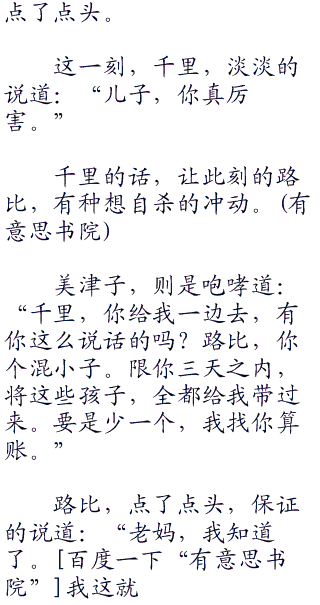 点了点头。
这一刻，千里，淡淡的
说道：“儿子，你真厉
害。”
千里的话，让此刻的路
比，有种想自杀的冲动。(有
意思书院)
美津子，则是咆哮道：
“千里，你给我一边去，有
你这么说话的吗？路比，你
个混小子。限你三天之内，
将这些孩子，全都给我带过
来。要是少一个，我找你算
账。”
路比，点了点头，保证
的说道：“老妈，我知道
了。[百度一下“有意思书
院”]我这就